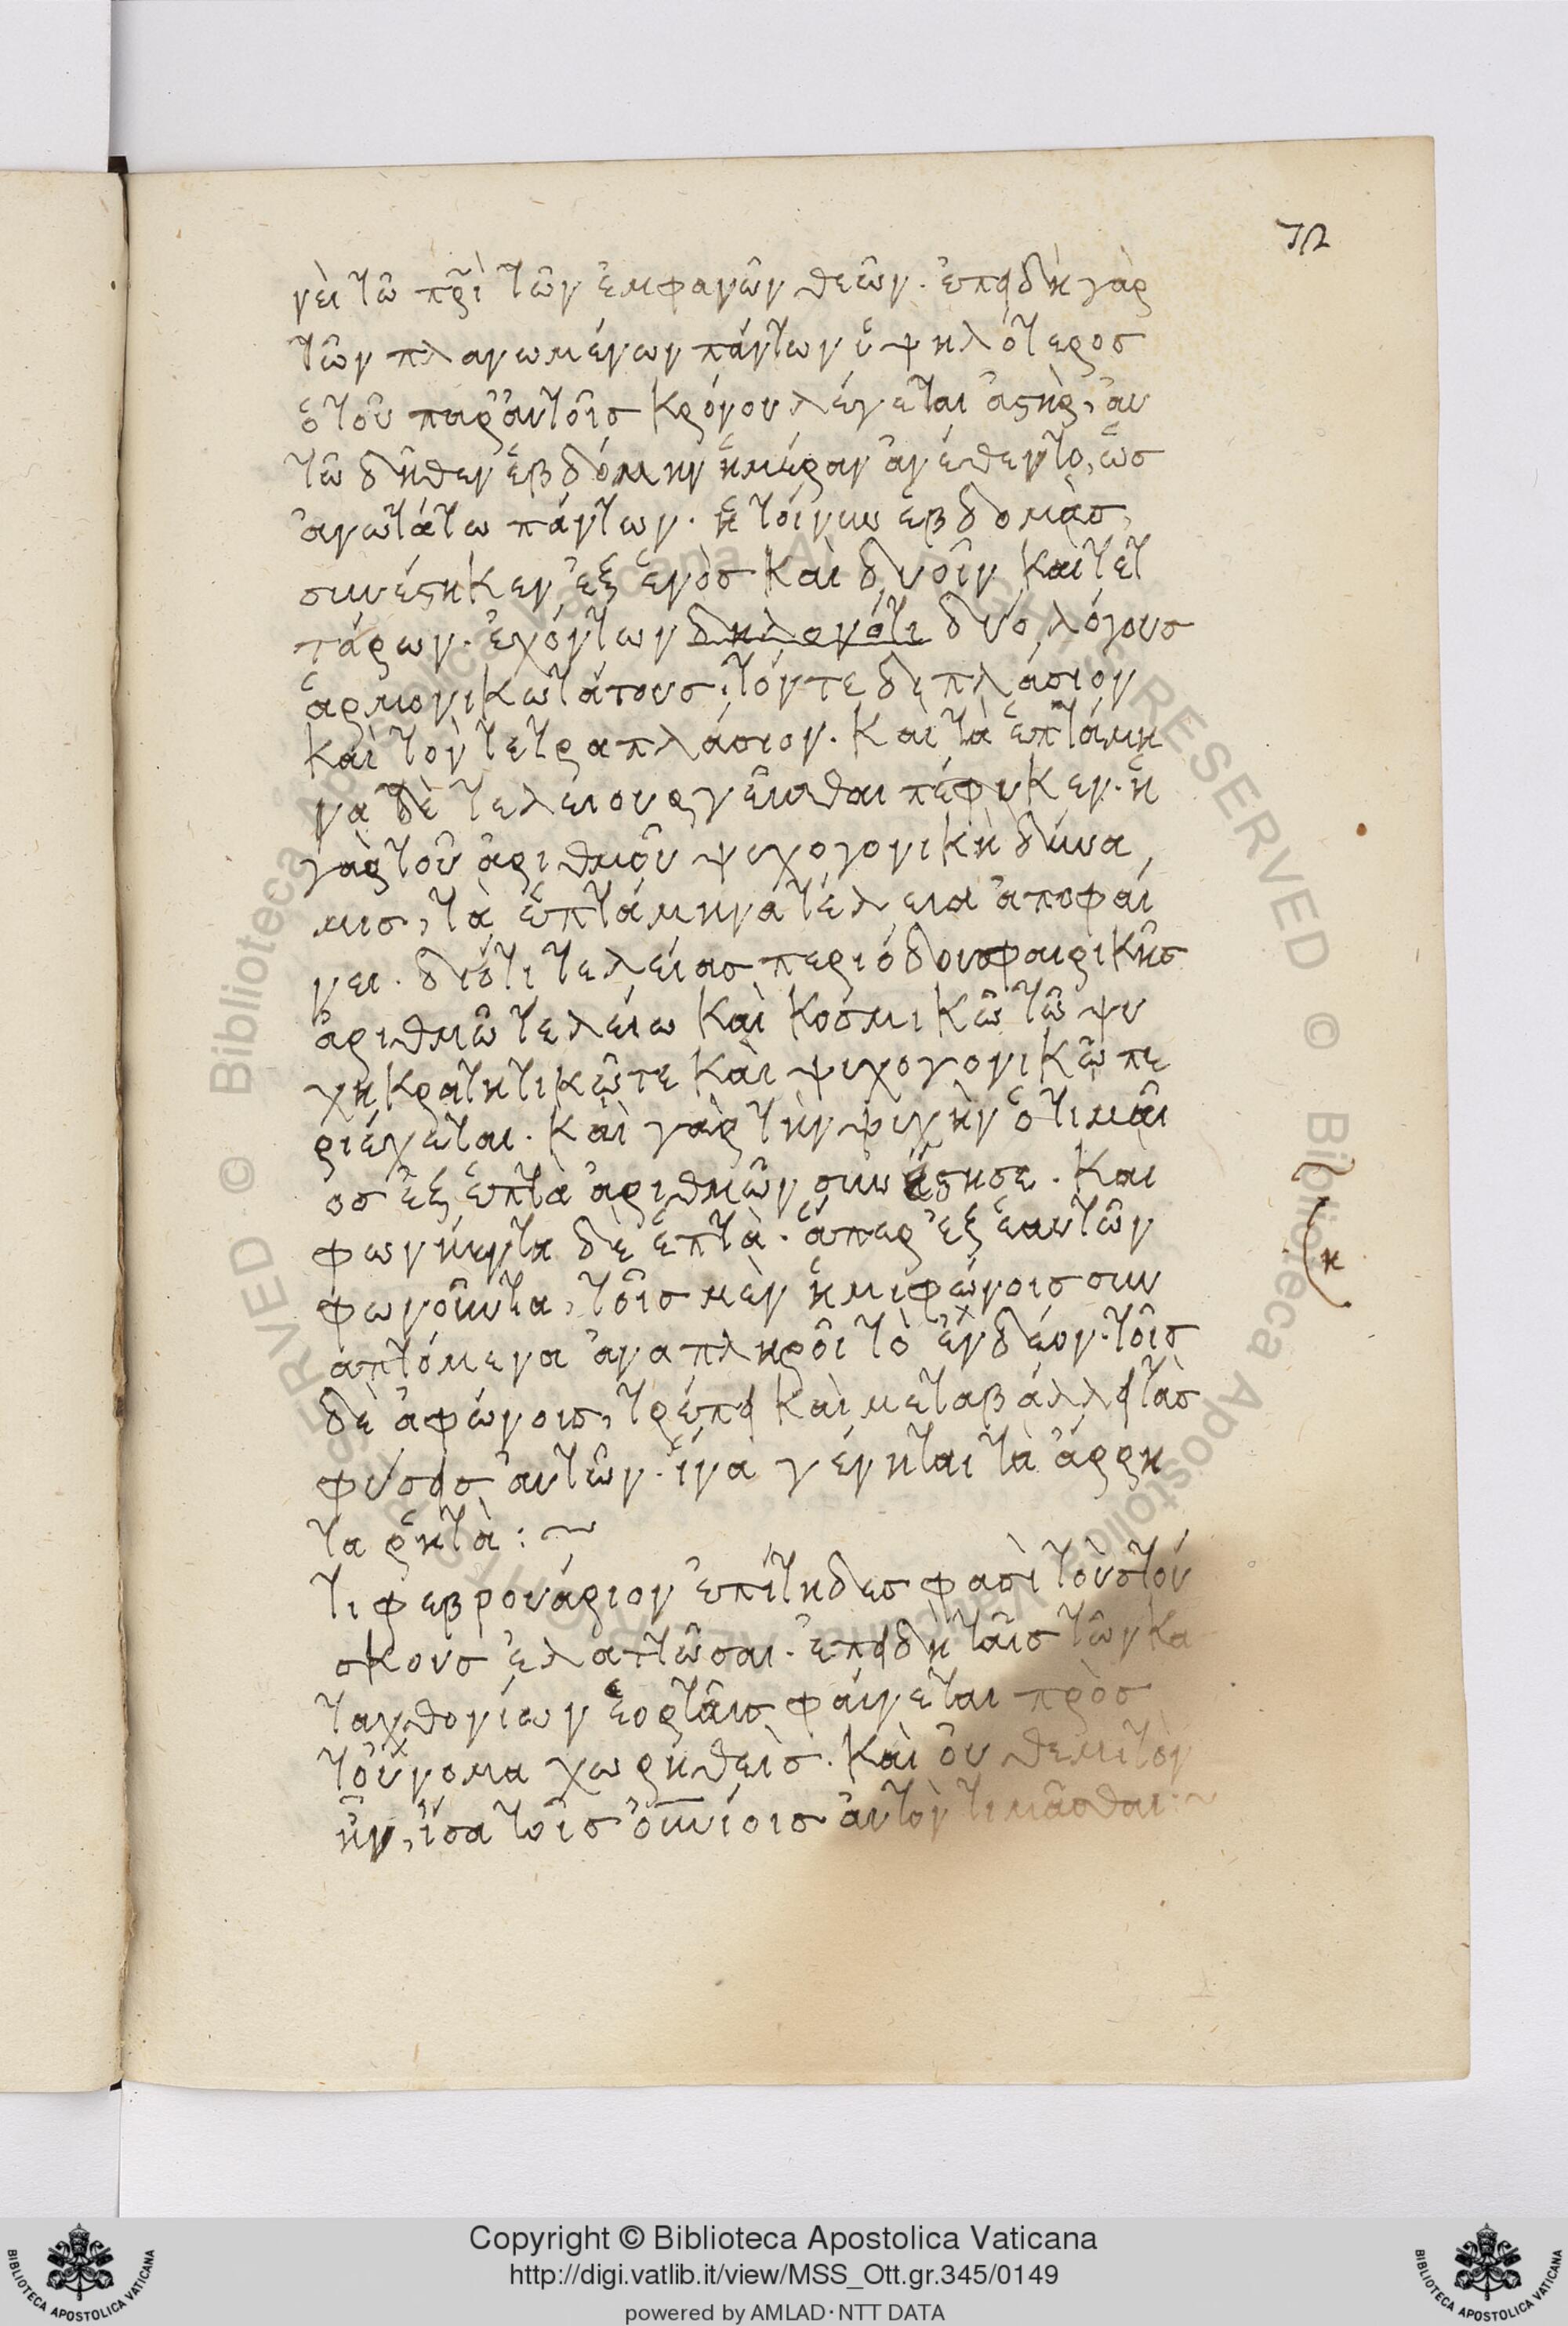 72
νὲι τῶ πρὶ τῶν ἐμφανῶν θεῶν. ἐπειδὴ γὰρ
τῶν πλανωμένων πάντων ὑψηλότερος
ὁ τοῦ παρ' αυτοῖς Κρόνου λέγεται ἀστὴρ, ἀυ
τῶ δῆθεν ἑβδόμην ἡμέραν ἀνέθεντο, ὡς
ἀνωτάτω πάντων. ἡ τοίνυν ἑβδομὰς,
συνέστηκεν ἐξ ἑνὸς καὶ δυοῖν καὶ τετ
τάρων. ἐχόντων δηλονότι δύο λόγους
ἁρμονικωτάτους, τόν τε διπλάσιον
καὶ τὸν τετραπλάσιον. καὶ τὰ ἑπτάμη
να δὲ τελειουργεῖσθαι πέφυκεν. ἡ
γὰρ τοῦ ἀριθμοῦ ψυχογονικὴ δύνα
μις, τὰ ἑπτάμηνα τέλεια ἀποφαί
νει. διότι τελείας περιόδου σφαιρικῆς
ἀριθμῶ τελείω καὶ κοσμικῶ τῶ ψυ
χηκρατητικῶ τε καὶ ψυχογονικῶ πε
ριέχεται. καὶ γὰρ τὴν ψυχὴν ὁ τιμᾶι
ος ἐξ ἑπτὰ ἀριθμῶν συνέστησε. και
φωνήεντα δὲ ἑπτὰ. ἅπερ ἐξ ἑαυτῶν
φωνοῦντα, τοῖς μὲν ἡμιφώνοις συν
απτόμενα ἀναπληροῖ τὸ ἐνδέον. τοῖς
δὲ ἀφώνοις, τρέπει καὶ μεταβάλλει τὰς
φύσεις ἀυτῶν. ἵνα γένηται τὰ ἄρρη
τα ῥητὰ : ~
τι φεβρουάριον ἐπίτηδες φασὶ τοὺς τού
σκους ἐλαττῶσαι. ἐπειδὴ ταῖς τῶν κα
ταχθονίων ἑορταῖς φαίνεται πρὸς
τοὔνομα χωρηθεὶς. καὶ ὀυ θεμιτὸν
ἦν, ἴσα τοῖς ὀυνίοις ἀυτὸν τιμᾶσθαι ~
Copyright © Biblioteca Apostolica Vaticana
http://digi.vatlib.it/view/MSS_Ott.gr.345/0149
powered by AMLAD·NTT DATA